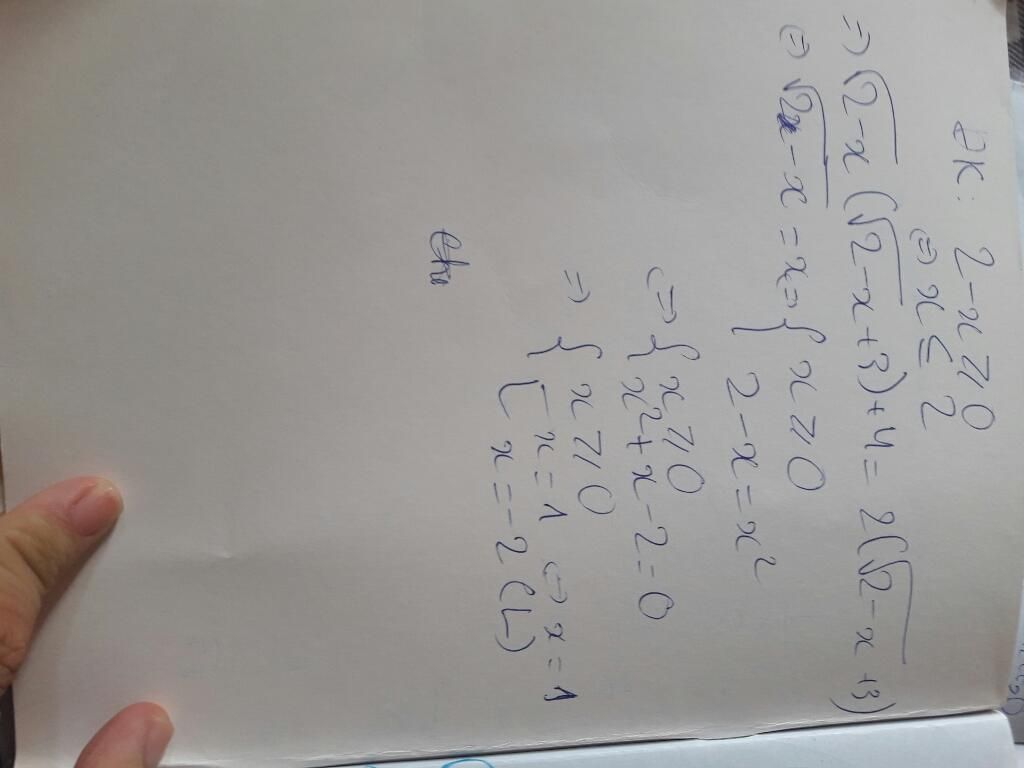 ĐK: 2 - x ⩾ 0
⇔ x ≤ 2
⇒ √(2-x) (√(2-x) + 3) + 4 = 2(√(2-x) + 3)
⇔ √(2-x) = x ⇒ { x ⩾ 0
2 - x = x²
⇔ { x ⩾ 0
x² + x - 2 = 0
⇒ { x ⩾ 0
[ x = 1 ⇔ x = 1
x = -2 (L)